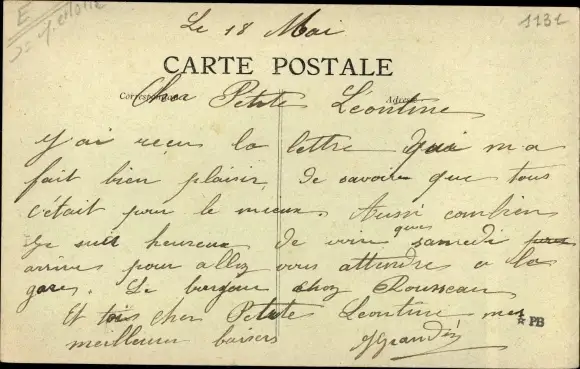 E
1132
Le 18 Mai
CARTE POSTALE
Correspondance
Adresse
Cher Petite Léontine
j'ai reçu la lettre qui m'a
fait bien plaisir, de savoir que tous
c'était pour le mieux. Aussi combien
Je suis heureux de voir ques samedi
arrive pour allez vous attendre a la
gare. Le bonjour chez Rousseau
Et toi cher Petite Léontine mes
meilleur baisers
PB